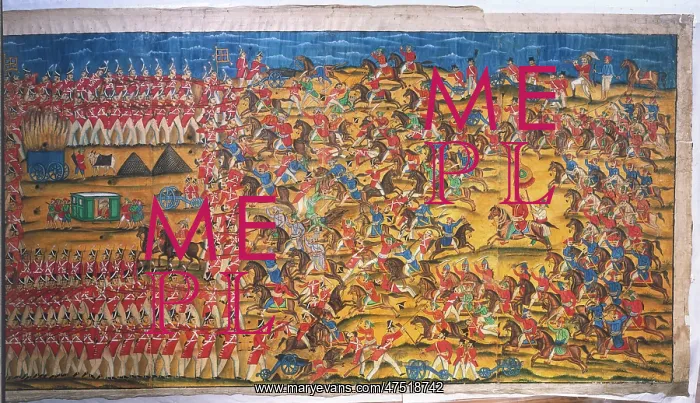 ME
PL
ME
PL
www.maryevans.com/47518742